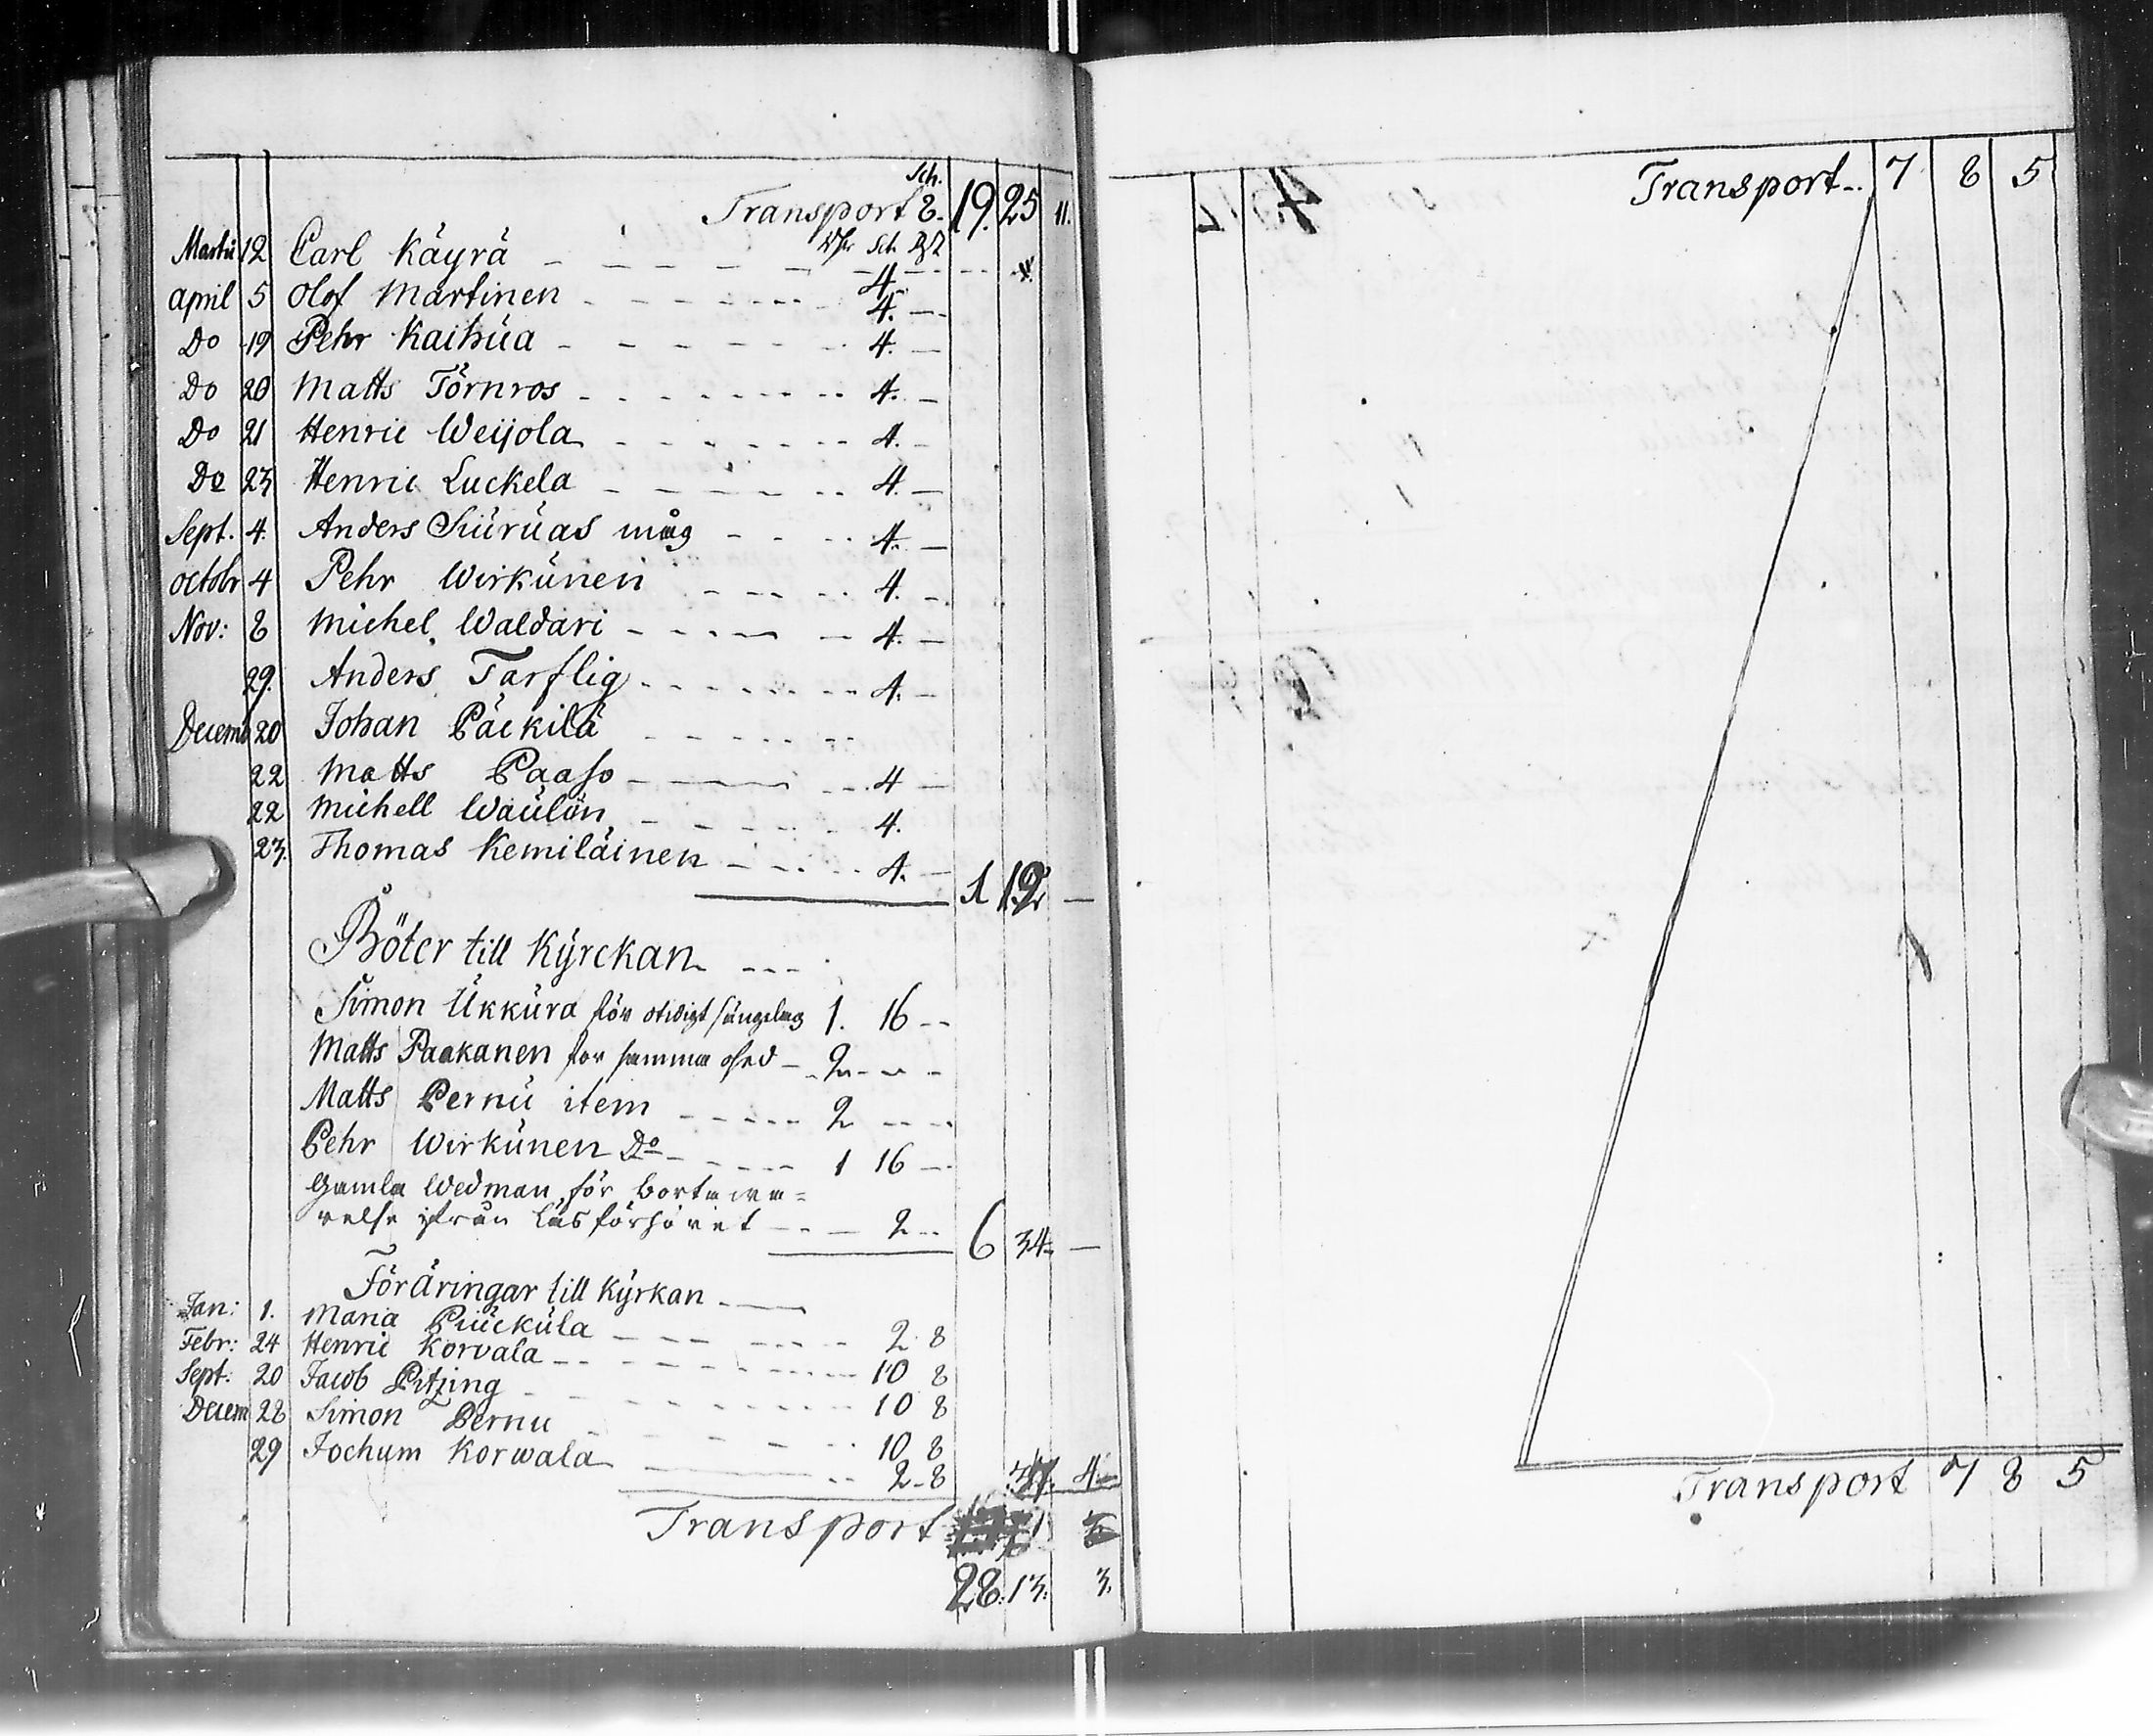 Sch.
Transport 8. 19. 25 11.
Martii 12 Carl Käyrä Sch 4.
April 5 Olof Martinen 4.
Do 19 Pehr Kaihüa 4.
Do 20 Matts Törnros 4.
Do 21 Henric Weijola 4.
Do 23 Henric Luckela 4.
Sept. 4. Anders Siürüas måg 4.
Octobr 4 Pehr Wirkünen 4.
Nov: 8 Michel Waldari 4.
29. Anders Tarflig 4.
Decemb 20 Johan Päckilä
22 Matts Paaso 4
22 Michell Waülön 4.
23. Thomas Kemiläinen 4.
1 12
Böter till Kÿrckan
Simon Ükküra för otidigt sängelag 1. 16
Matts Paakanen för samma osed 2
Matts Pernü item 2
Pehr Wirkünen Do 1 16
Gamla Wedman för bortawa=
relse ifrån Läsförhöret 2
6 34
Föräringar till Kÿrkan
Jan: 1. Maria Piücküla 2 8
Febr: 24 Henric Korvala 10 8
Sept: 20 Jacob Pitzing 10 8
Decem 28 Simon Pernu 10 8
29 Jochum Korwala 2 8
37. 4
Transport
28. 13. 3.
Transport 7 8 5
Transport 7 8 5